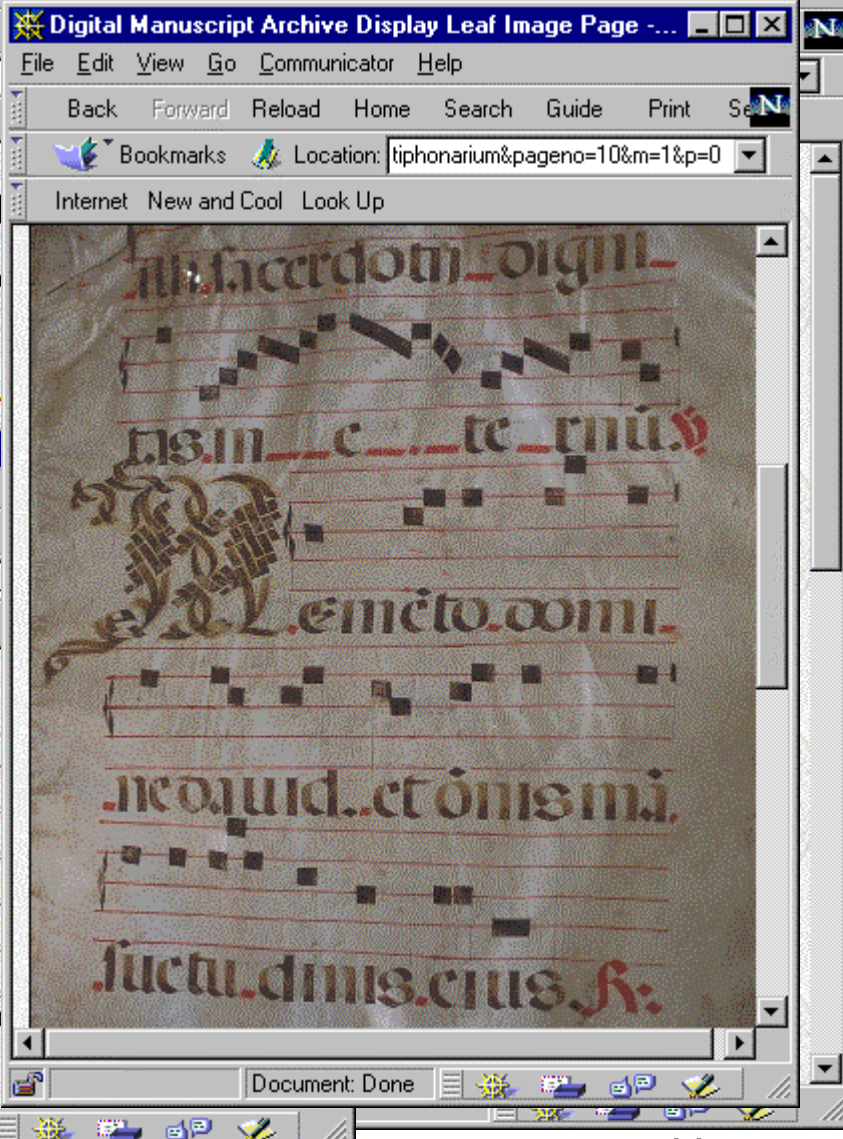 Digital Manuscript Archive Display Leaf Image Page -...
File Edit View Go Communicator Help
Back Forward Reload Home Search Guide Print Se
Bookmarks Location: tiphonarium&pageno=10&m=1&p=0
Internet New and Cool Look Up
illi.sacerdotii digni
tas.in e te rnū. ℣
Memēto.domi
ne dauid..et ōnis mā.
suctu.dinis.eius. ℟:
Document: Done